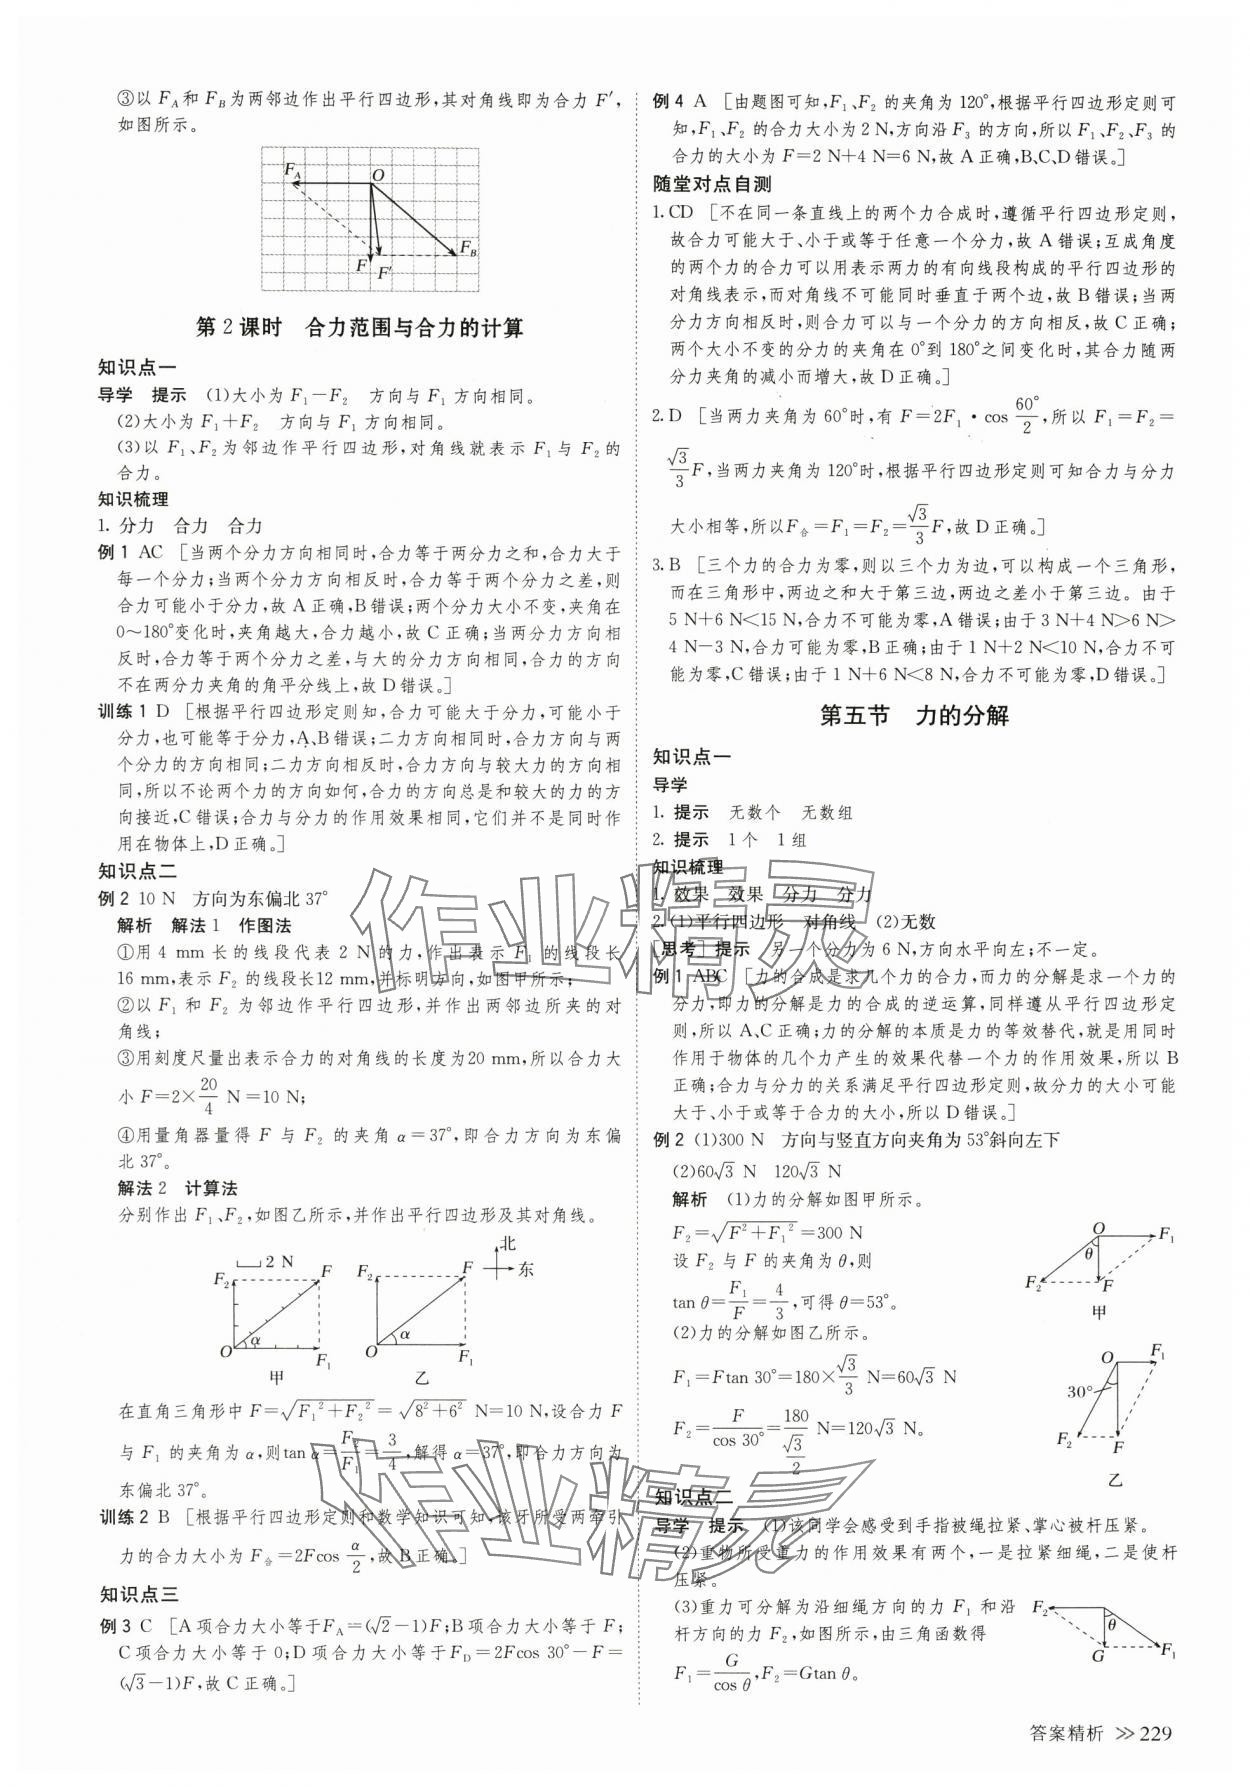 ③以 F_A和 F_B 为两邻边作出平行四边形,其对角线即为合力 F′,
如图所示。
F_A
O
F_B
F
F′
第 2 课时 合力范围与合力的计算
知识点一
导学 提示 (1)大小为 F₁−F₂ 方向与 F₁ 方向相同。
(2)大小为 F₁+F₂ 方向与 F₁ 方向相同。
(3)以 F₁、F₂ 为邻边作平行四边形,对角线就表示 F₁ 与 F₂的
合力。
知识梳理
1. 分力 合力 合力
例 1 AC [当两个分力方向相同时,合力等于两分力之和,合力大于
每一个分力;当两个分力方向相反时,合力等于两个分力之差,则
合力可能小于分力,故 A 正确,B 错误;两个分力大小不变,夹角在
0~180°变化时,夹角越大,合力越小,故 C 正确;当两分力方向相
反时,合力等于两个分力之差,与大的分力方向相同,合力的方向
不在两分力夹角的角平分线上,故 D 错误。]
训练 1 D [根据平行四边形定则知,合力可能大于分力,可能小于
分力,也可能等于分力,A、B 错误;二力方向相同时,合力方向与两
个分力的方向相同;二力方向相反时,合力方向与较大力的方向相
同,所以不论两个力的方向如何,合力的方向总是和较大的力的方
向接近,C 错误;合力与分力的作用效果相同,它们并不是同时作
用在物体上,D 正确。]
知识点二
例 2 10 N 方向为东偏北 37°
解析 解法 1 作图法
①用 4 mm 长的线段代表 2 N 的力,作出表示 F₁ 的线段长
16 mm,表示 F₂ 的线段长12 mm,并标明方向,如图甲所示;
②以 F₁ 和 F₂ 为邻边作平行四边形,并作出两邻边所夹的对
角线;
③用刻度尺量出表示合力的对角线的长度为20 mm,所以合力大
小 F=2×20/4 N=10 N;
④用量角器量得 F 与 F₂ 的夹角 α=37°,即合力方向为东偏
北 37°。
解法 2 计算法
分别作出 F₁、F₂,如图乙所示,并作出平行四边形及其对角线。
2 N
F₂
F
O
α
F₁
甲
F₂
F
O
α
F₁
乙
北
东
在直角三角形中 F=√(F₁²+F₂²)=√(8²+6²) N=10 N,设合力 F
与 F₁ 的夹角为 α,则tan α=F₂/F₁=3/4,解得 α=37°,即合力方向为
东偏北 37°。
训练 2 B [根据平行四边形定则和数学知识可知,该牙所受两牵引
力的合力大小为 F合=2Fcos α/2,故 B 正确。]
知识点三
例 3 C [A 项合力大小等于F_A=(√2−1)F;B 项合力大小等于 F;
C 项合力大小等于 0;D 项合力大小等于F_D=2Fcos 30°−F=
(√3−1)F,故 C 正确。]
例 4 A [由题图可知,F₁、F₂ 的夹角为 120°,根据平行四边形定则可
知,F₁、F₂ 的合力大小为 2 N,方向沿 F₃ 的方向,所以 F₁、F₂、F₃ 的
合力的大小为 F=2 N+4 N=6 N,故 A 正确,B、C、D 错误。]
随堂对点自测
1. CD [不在同一条直线上的两个力合成时,遵循平行四边形定则,
故合力可能大于、小于或等于任意一个分力,故 A 错误;互成角度
的两个力的合力可以用表示两力的有向线段构成的平行四边形的
对角线表示,而对角线不可能同时垂直于两个边,故 B 错误;当两
分力方向相反时,则合力可以与一个分力的方向相反,故 C 正确;
两个大小不变的分力的夹角在 0°到 180°之间变化时,其合力随两
分力夹角的减小而增大,故 D 正确。]
2. D [当两力夹角为 60°时,有 F=2F₁·cos 60°/2,所以 F₁=F₂=
√3/3 F,当两力夹角为 120°时,根据平行四边形定则可知合力与分力
大小相等,所以F合=F₁=F₂=√3/3 F,故 D 正确。]
3. B [三个力的合力为零,则以三个力为边,可以构成一个三角形,
而在三角形中,两边之和大于第三边,两边之差小于第三边。由于
5 N+6 N<15 N,合力不可能为零,A 错误;由于 3 N+4 N>6 N>
4 N−3 N,合力可能为零,B 正确;由于 1 N+2 N<10 N,合力不可
能为零,C 错误;由于 1 N+6 N<8 N,合力不可能为零,D 错误。]
第五节 力的分解
知识点一
导学
1. 提示 无数个 无数组
2. 提示 1 个 1 组
知识梳理
1. 效果 效果 分力 分力
2. (1)平行四边形 对角线 (2)无数
[思考] 提示 另一个分力为 6 N,方向水平向左;不一定。
例 1 ABC [力的合成是求几个力的合力,而力的分解是求一个力的
分力,即力的分解是力的合成的逆运算,同样遵从平行四边形定
则,所以 A、C 正确;力的分解的本质是力的等效替代,就是用同时
作用于物体的几个力产生的效果代替一个力的作用效果,所以 B
正确;合力与分力的关系满足平行四边形定则,故分力的大小可能
大于、小于或等于合力的大小,所以 D 错误。]
例 2 (1)300 N 方向与竖直方向夹角为 53°斜向左下
(2)60√3 N 120√3 N
解析 (1)力的分解如图甲所示。
F₂=√(F²+F₁²)=300 N
设 F₂ 与 F 的夹角为 θ,则
tan θ=F₁/F=4/3,可得 θ=53°。
O
F₁
θ
F₂
F
甲
(2)力的分解如图乙所示。
F₁=Ftan 30°=180×√3/3 N=60√3 N
F₂=F/cos 30°=180/(√3/2) N=120√3 N。
O
F₁
30°
F₂
F
乙
知识点二
导学 提示 (1)该同学会感受到手指被绳拉紧、掌心被杆压紧。
(2)重物所受重力的作用效果有两个,一是拉紧细绳,二是使杆
压紧。
(3)重力可分解为沿细绳方向的力 F₁ 和沿
杆方向的力 F₂,如图所示,由三角函数得
F₁=G/cos θ,F₂=Gtan θ。
F₂
θ
G
F₁
作业精灵
作业精灵
答案精析 >> 229